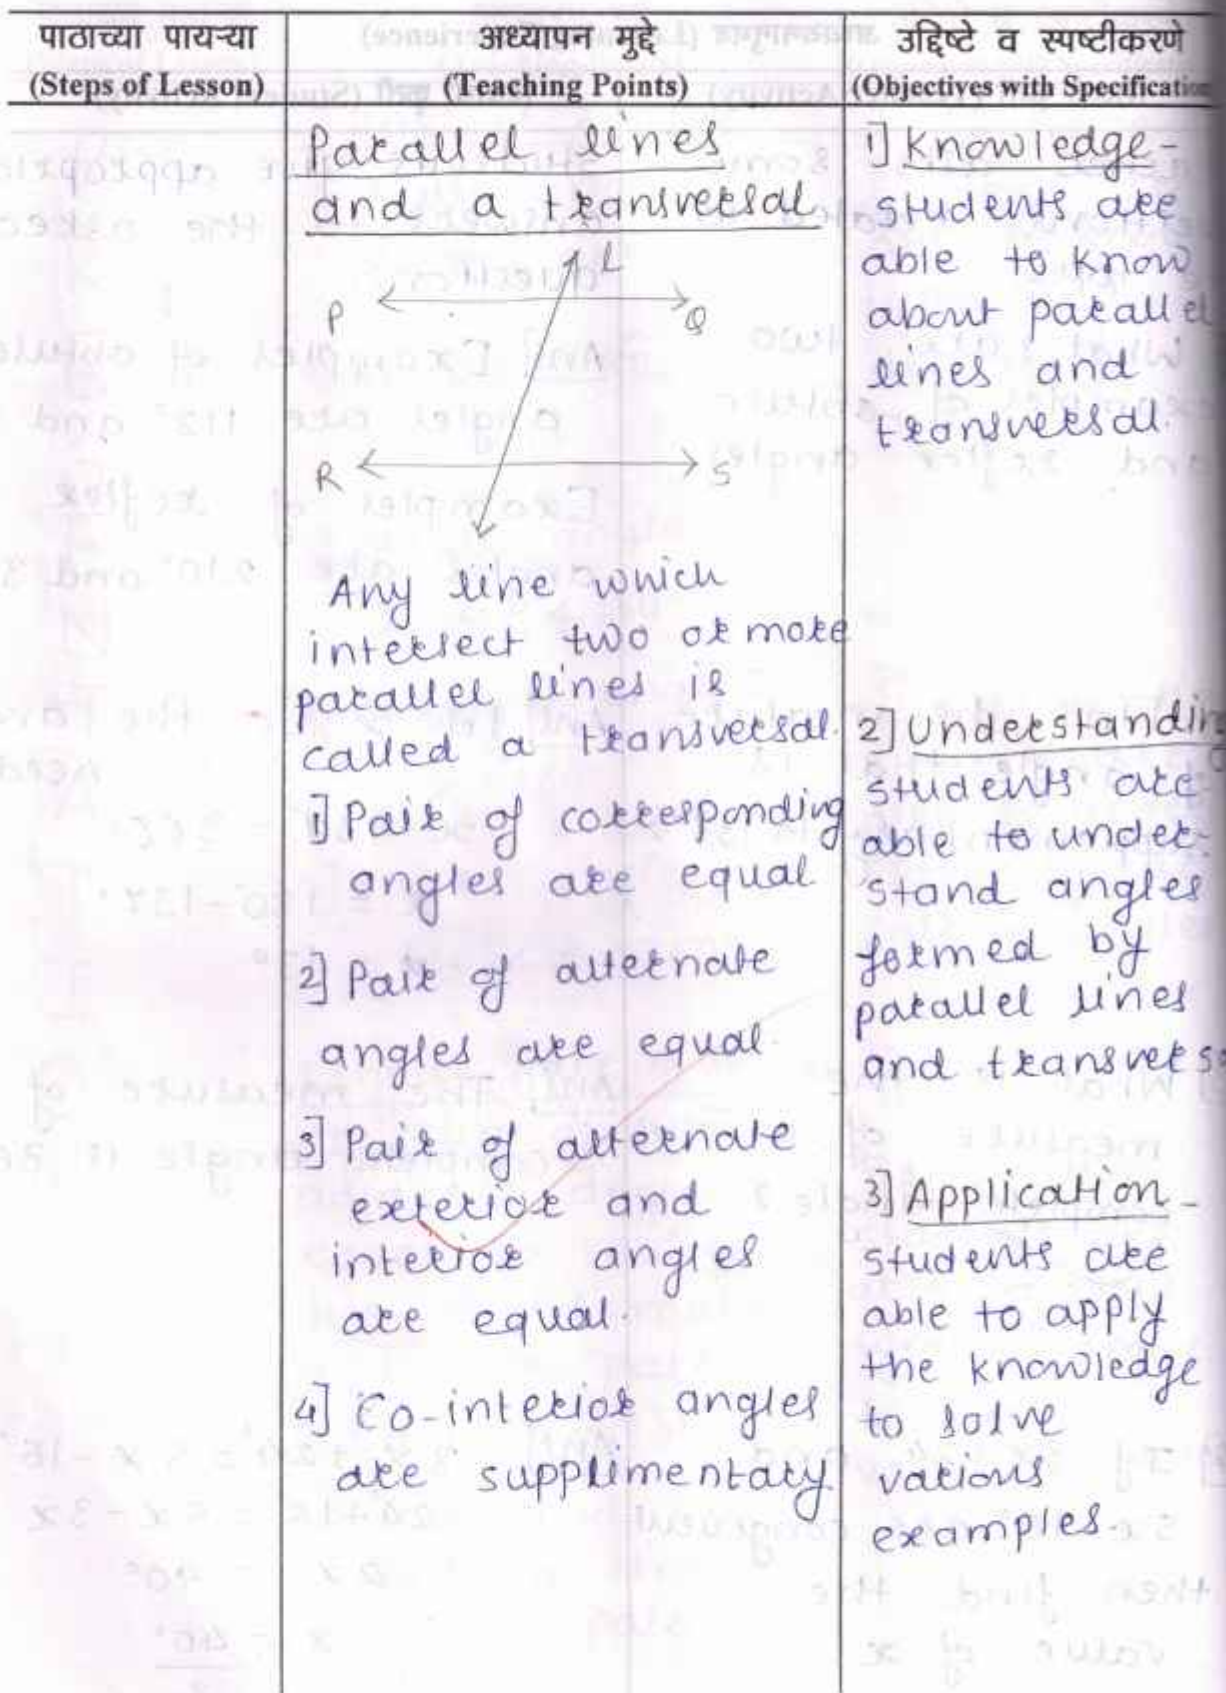 पाठाच्या पायऱ्या
(Steps of Lesson)
अध्यापन मुद्दे
(Teaching Points)
उद्दिष्टे व स्पष्टीकरणे
(Objectives with Specification
Parallel lines
and a transversal
L
P
Q
R
S
Any line which
intersect two or more
parallel lines is
called a transversal.
1] Pair of corresponding
angles are equal
2] Pair of alternate
angles are equal.
3] Pair of alternate
exterior and
interior angles
are equal.
4] Co-interior angles
are supplimentary.
1] Knowledge -
students are
able to know
about parallel
lines and
transversal.
2] Understanding
students are
able to under-
stand angles
formed by
parallel lines
and transvers
3] Application -
students are
able to apply
the knowledge
to solve
various
examples.